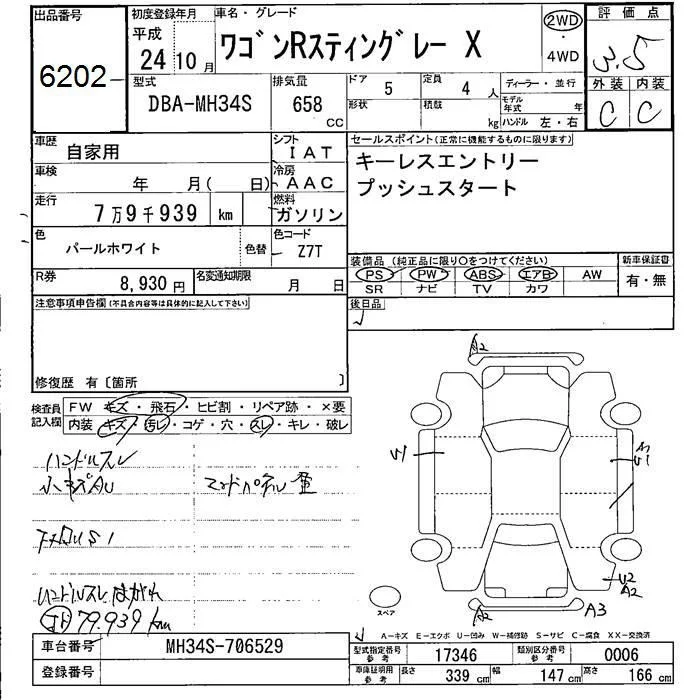 出品番号
6202
初度登録年月
平成
24 10月
車名・グレード
ワゴンRスティングレー X
2WD
・
4WD
評価点
3.5
外装 内装
C C
型式
DBA-MH34S
排気量
658
CC
ドア
5
形状
定員
4 人
積載
kg
ディーラー・並行
モデル年式 年
ハンドル 左・右
車歴
自家用
シフト
IAT
車検
年 月( 日)
冷房
AAC
走行
7万9千939 km
燃料
ガソリン
色
パールホワイト
色替
色コード
Z7T
R券
8,930円
名変通知期限
月 日
セールスポイント(正常に機能するものに限ります)
キーレスエントリー
プッシュスタート
装備品(純正品に限り○をつけてください)
PS PW ABS エアB AW
SR ナビ TV カワ
新車保証書
有・無
後日品
注意事項申告欄(不具合内容等は具体的に記入して下さい)
修復歴 有〔箇所 〕
検査員記入欄
FW キズ・飛石・ヒビ割・リペア跡・×要
内装 キズ・汚レ・コゲ・穴・スレ・キレ・破レ
ハンドルスレ
小キズAU
ハンドルスレ はがれ
79.939km
A2
U1
U1
U2
A2
A2
A3
スペア
A-キズ E-エクボ U-凹み W-補修跡 S-サビ C-腐食 XX-交換済
車台番号
MH34S-706529
登録番号
型式指定番号
参考
17346
類別区分番号
参考
0006
車庫証明用
参考
長さ 339 cm 幅 147 cm 高さ 166 cm